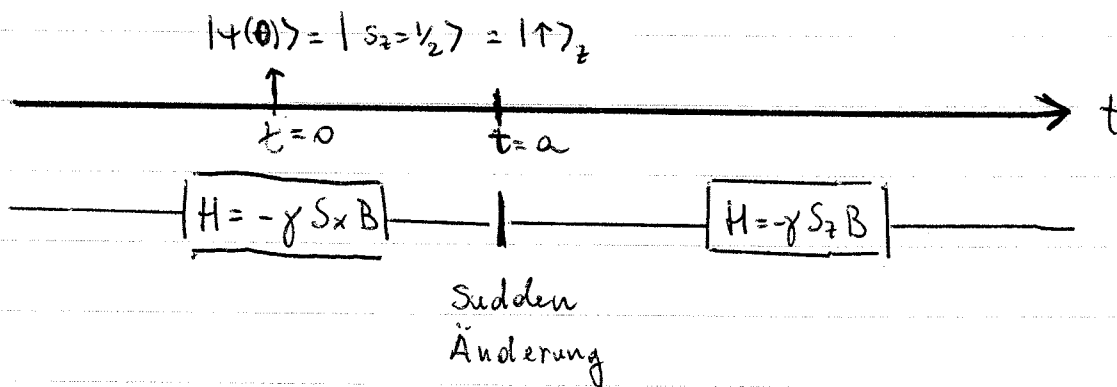 |ψ(0)⟩ = | S_z = 1/2 ⟩ = |↑⟩_z
t
t = 0
t = a
H = -γ S_x B
H = -γ S_z B
Sudden
Änderung